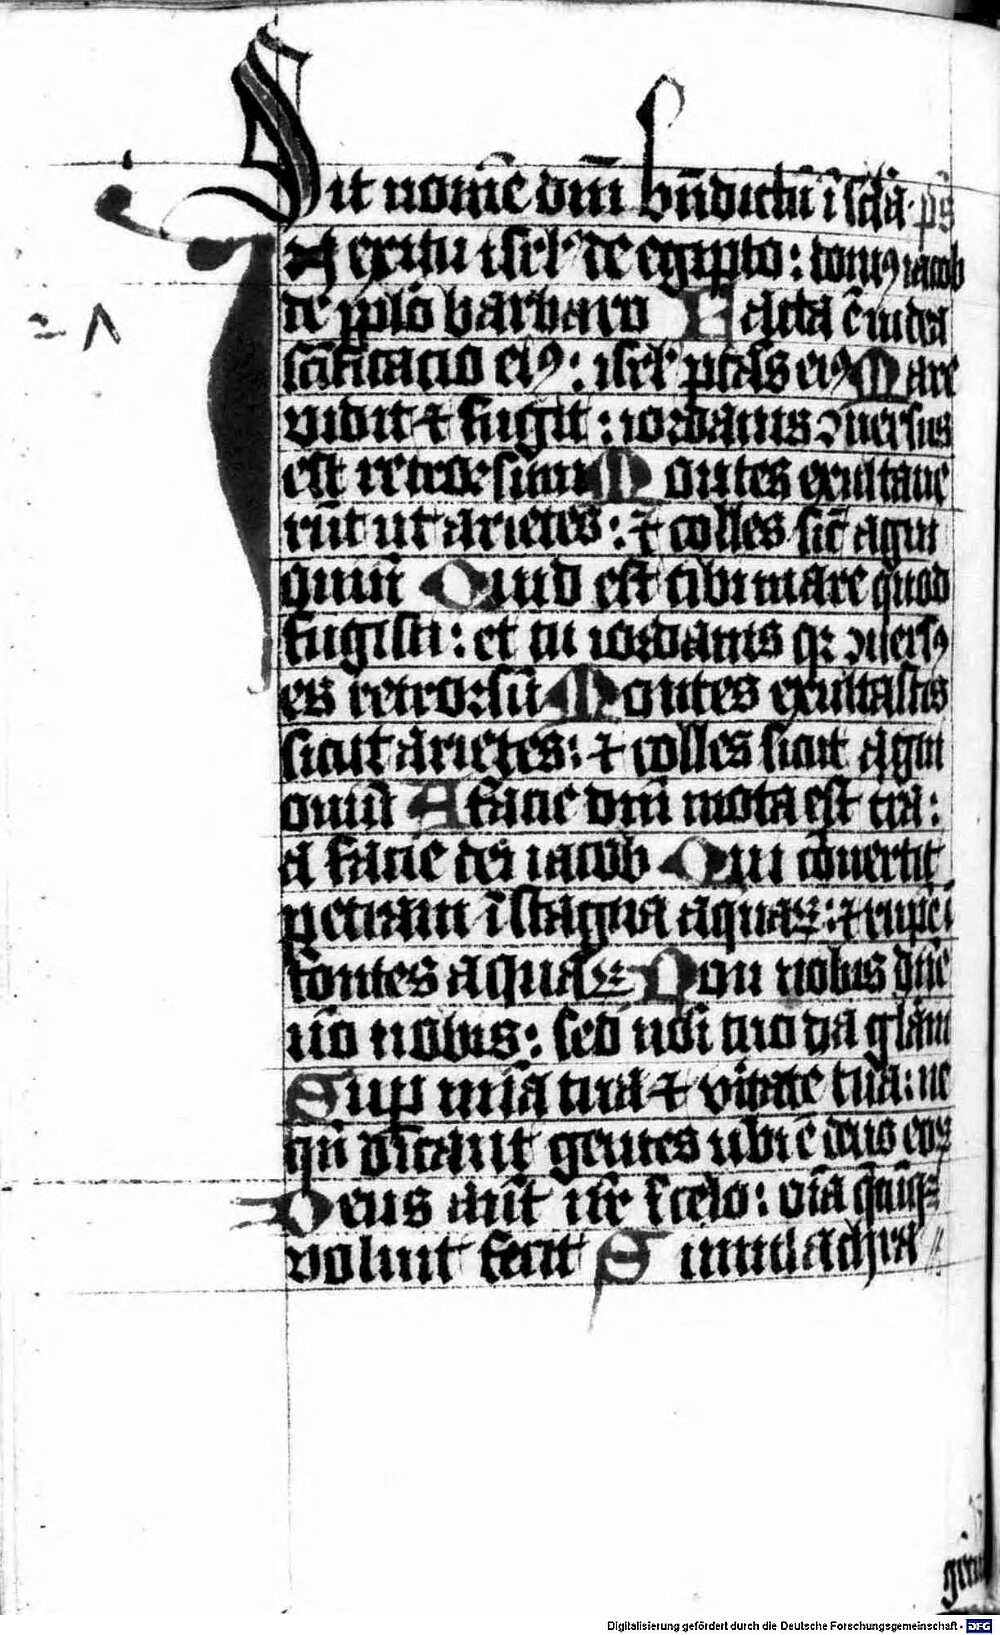 Sit nome dm bndictu i scla· ps
In exitu isrl' de egipto : domꝰ iacob
de pplo barbaro Facta e iudea
scificacio eiꝰ : isrl' ptas eiꝰ Mare
vidit ⁊ fugit : iordanis ꝯuersus
est retrorsum Montes exultaue
rūt ut arietes : ⁊ colles sic̄ agni
ouiū Quid est tibi mare quod
fugisti : et tu iordanis qꝛ ꝯuersꝰ
es retrorsū Montes exultastis
sicut arietes : ⁊ colles sicut agni
ouiū A facie dm̄i mota est tr̄a :
a facie dei iacob Qui cōuertit
petram ī stagna aquaꝝ : ⁊ rupē ī
fontes aquaꝝ Non nobis dn̄e
nō nobis : sed noī tuo da glām
Sup mīa tua ⁊ vītate tua : ne
qn̄ dicant gentes ubi ē deus eoꝝ
Deus aūt nr̄ ī celo : oīa q̄cūqꝫ
voluit fecit Simulachra